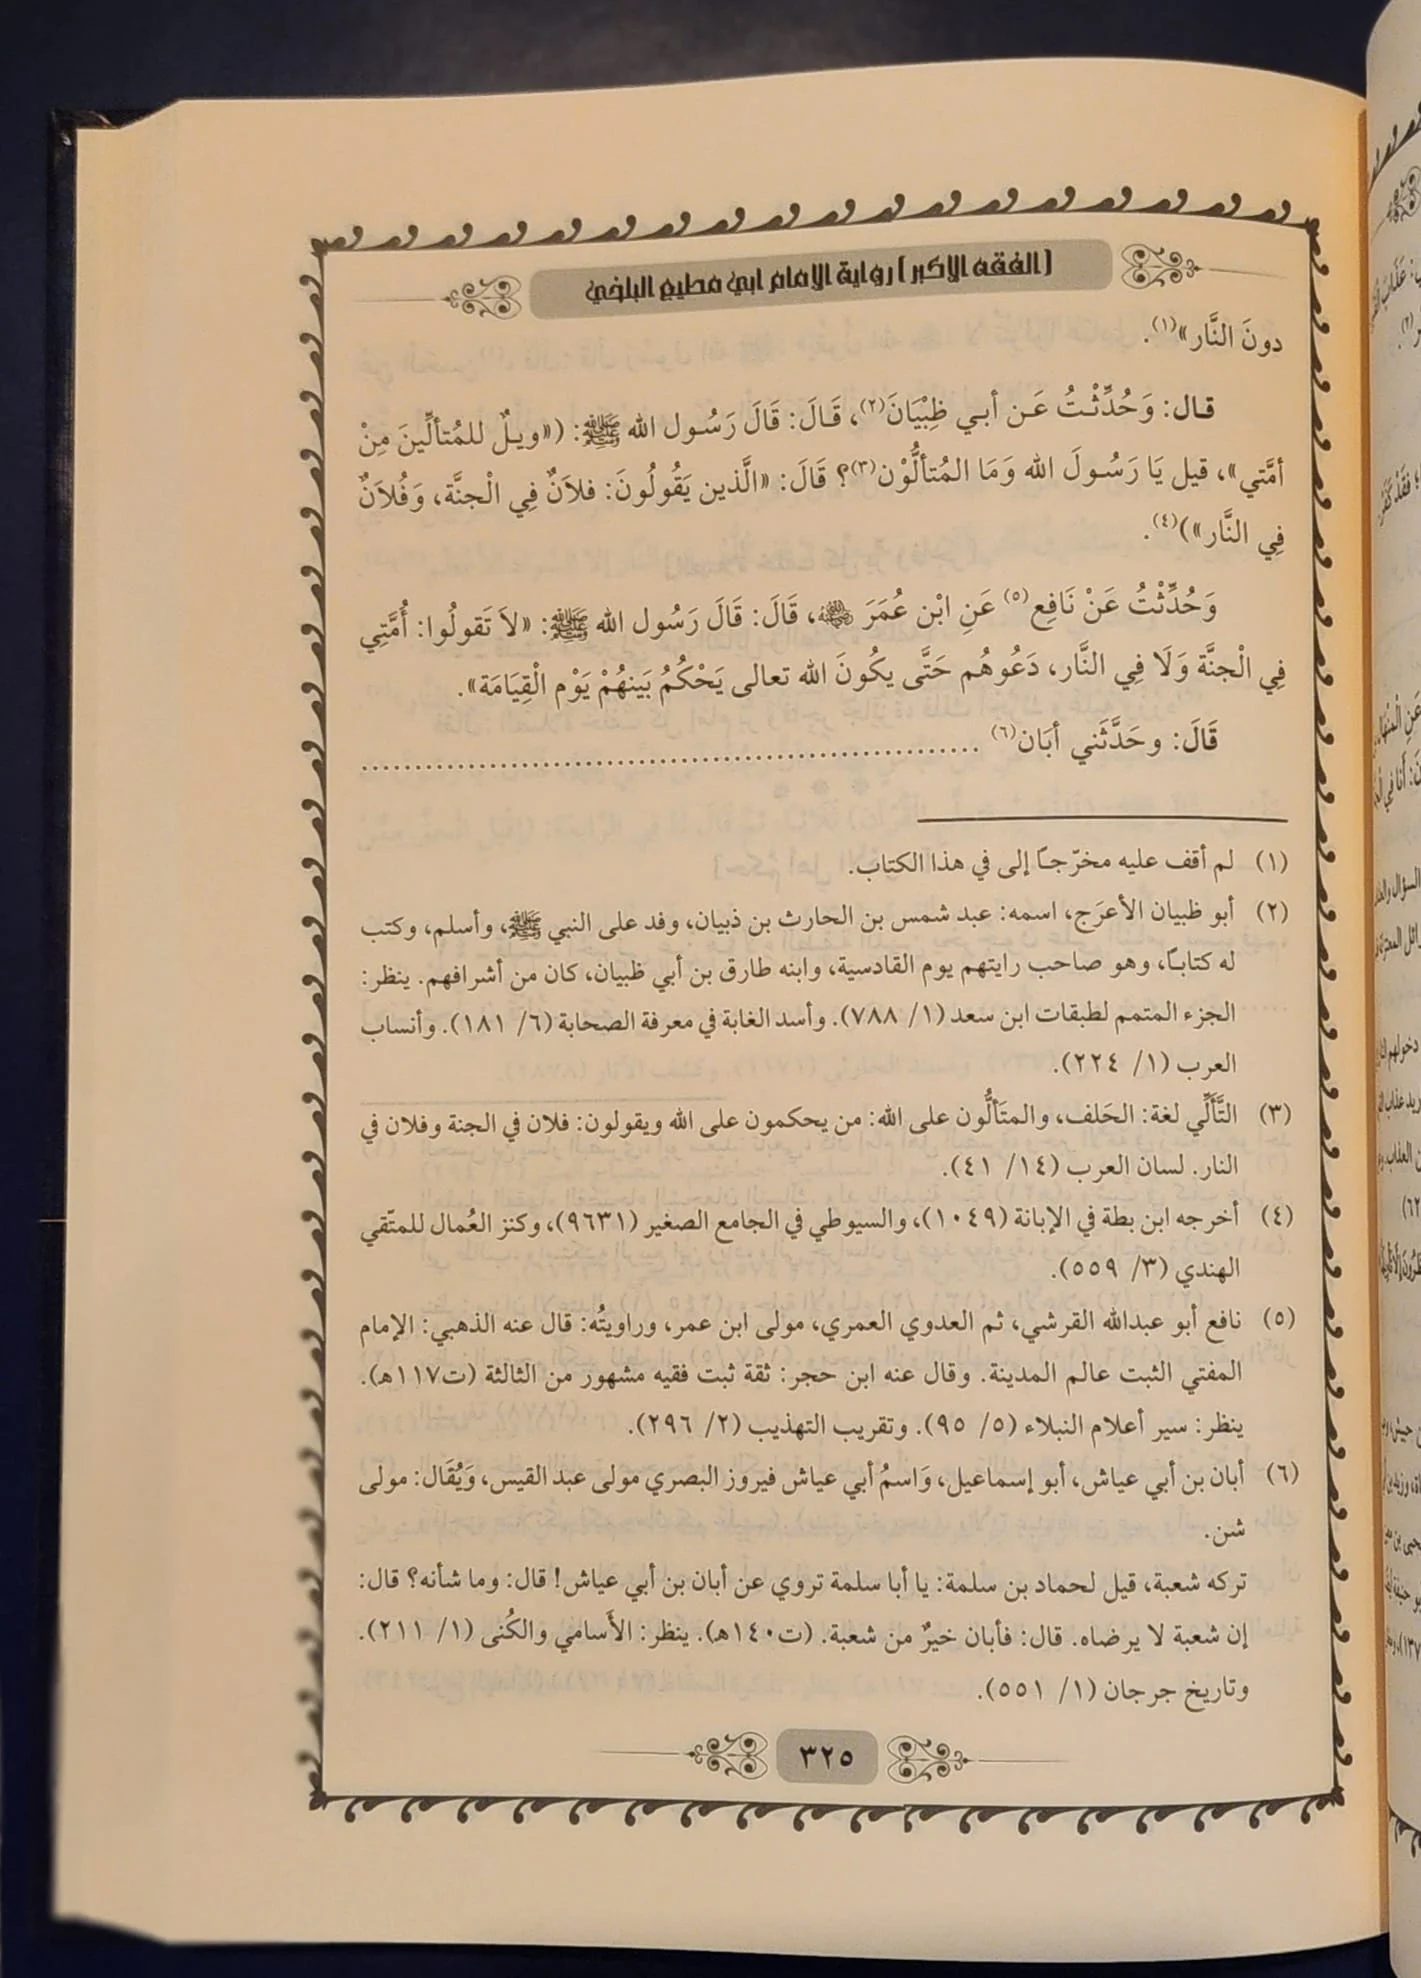 (الفقه الاكبر) رواية الامام ابي مطيع البلخي
دونَ النَّار»(١).
قال: وَحُدِّثْتُ عَن أبي ظِبْيَانَ(٢)، قَالَ: قَالَ رَسُول الله ﷺ: («ويلٌ للمُتألِّينَ مِنْ
أمَّتي»، قيل يَا رَسُولَ الله وَمَا المُتألُّوْن(٣)؟ قَالَ: «الَّذين يَقُولُونَ: فلاَنٌ فِي الْجنَّة، وَفُلاَنٌ
فِي النَّار»)(٤).
وَحُدِّثْتُ عَنْ نَافِع(٥) عَنِ ابْن عُمَرَ ﵁، قَالَ: قَالَ رَسُول الله ﷺ: «لاَ تَقولُوا: أُمَّتِي
فِي الْجنَّة وَلَا فِي النَّار، دَعُوهُم حَتَّى يكُونَ الله تعالى يَحْكُمُ بَينهُمْ يَوْم الْقِيَامَة».
قَالَ: وحَدَّثَني أبَان(٦) ............................................................
(١) لم أقف عليه مخرّجـًا إلى في هذا الكتاب.
(٢) أبو ظبيان الأعرَج، اسمه: عبد شمس بن الحارث بن ذبيان، وفد على النبي ﷺ، وأسلم، وكتب
له كتابـًا، وهو صاحب رايتهم يوم القادسية، وابنه طارق بن أبي ظبيان، كان من أشرافهم. ينظر:
الجزء المتمم لطبقات ابن سعد (١/ ٧٨٨). وأسد الغابة في معرفة الصحابة (٦/ ١٨١). وأنساب
العرب (١/ ٢٢٤).
(٣) التَّأَلِّي لغة: الحَلف، والمتَألُّون على الله: من يحكمون على الله ويقولون: فلان في الجنة وفلان في
النار. لسان العرب (١٤/ ٤١).
(٤) أخرجه ابن بطة في الإبانة (١٠٤٩)، والسيوطي في الجامع الصغير (٩٦٣١)، وكنز العُمال للمتّقي
الهندي (٣/ ٥٥٩).
(٥) نافع أبو عبدالله القرشي، ثم العدوي العمري، مولى ابن عمر، وراويتُه: قال عنه الذهبي: الإمام
المفتي الثبت عالم المدينة. وقال عنه ابن حجر: ثقة ثبت فقيه مشهور من الثالثة (ت١١٧هـ).
ينظر: سير أعلام النبلاء (٥/ ٩٥). وتقريب التهذيب (٢/ ٢٩٦).
(٦) أبان بن أبي عياش، أبو إسماعيل، وَاسمُ أبي عياش فيروز البصري مولى عبد القيس، وَيُقَال: مولى
شن.
تركه شعبة، قيل لحماد بن سلمة: يا أبا سلمة تروي عن أبان بن أبي عياش! قال: وما شأنه؟ قال:
إن شعبة لا يرضاه. قال: فأبان خيرٌ من شعبة. (ت١٤٠هـ). ينظر: الأَسامي والكُنى (١/ ٢١١).
وتاريخ جرجان (١/ ٥٥١).
٣٢٥